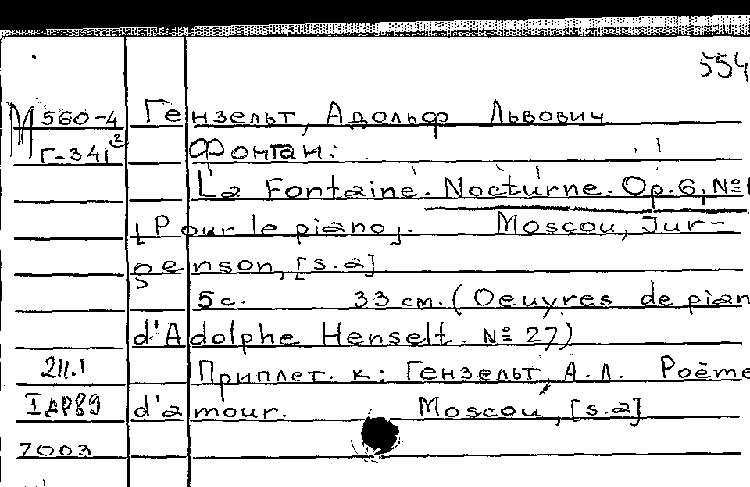 554
М 560-4 Гензельт, Адольф Львович
Г-341² Фонтан:
La Fontaine. Nocturne. Op.6, №
[Pour le piano]. Moscou, Jur-
genson, [s.a]
5 с. 33 см. (Oeuvres de pian
d'Adolphe Henselt. № 27)
211.1 Приплет. к: Гензельт, А.Л. Poëme
IAP89 d'amour. Moscou, [s.a]
7003